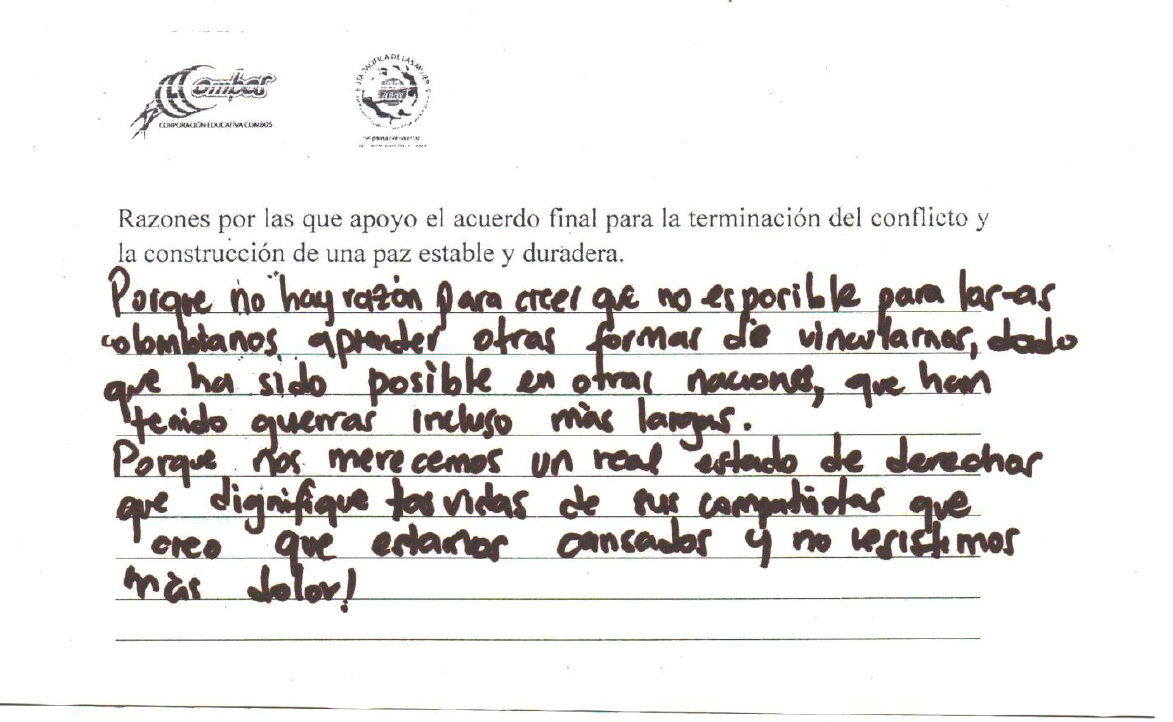 Combos
CORPORACIÓN EDUCATIVA COMBOS
RUTA PACÍFICA DE LAS MUJERES
Razones por las que apoyo el acuerdo final para la terminación del conflicto y
la construcción de una paz estable y duradera.
Porque no hay razón para creer que no es posible para las-as
colombianos aprender otras formas de vincularnos, dado
que ha sido posible en otras naciones, que han
tenido guerras incluso más largas.
Porque nos merecemos un real estado de derechos
que dignifique las vidas de sus compatriotas que
creo que estamos cansados y no resistimos
más dolor!